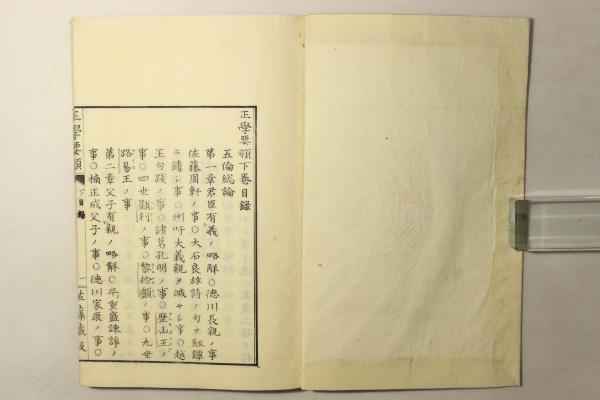 正學要領下巻目録
五倫総論
第一章君臣有義ノ略解○德川長親ノ事
佐藤周軒ノ事○大石良雄詩ノ句ヲ劔鐔
ニ鏤シ事○州吁大義親ヲ滅セシ事○越
王句踐ノ事○諸葛孔明ノ事○歴山王ノ
事○四世顯利ノ事○黎捨㔟ノ事○九世
路易王ノ事
第二章父子有親ノ略解○平重盛諌諍ノ
事○楠正成父子ノ事○德川家康ノ事○
正學要領 下目録 一 佐藤藏板